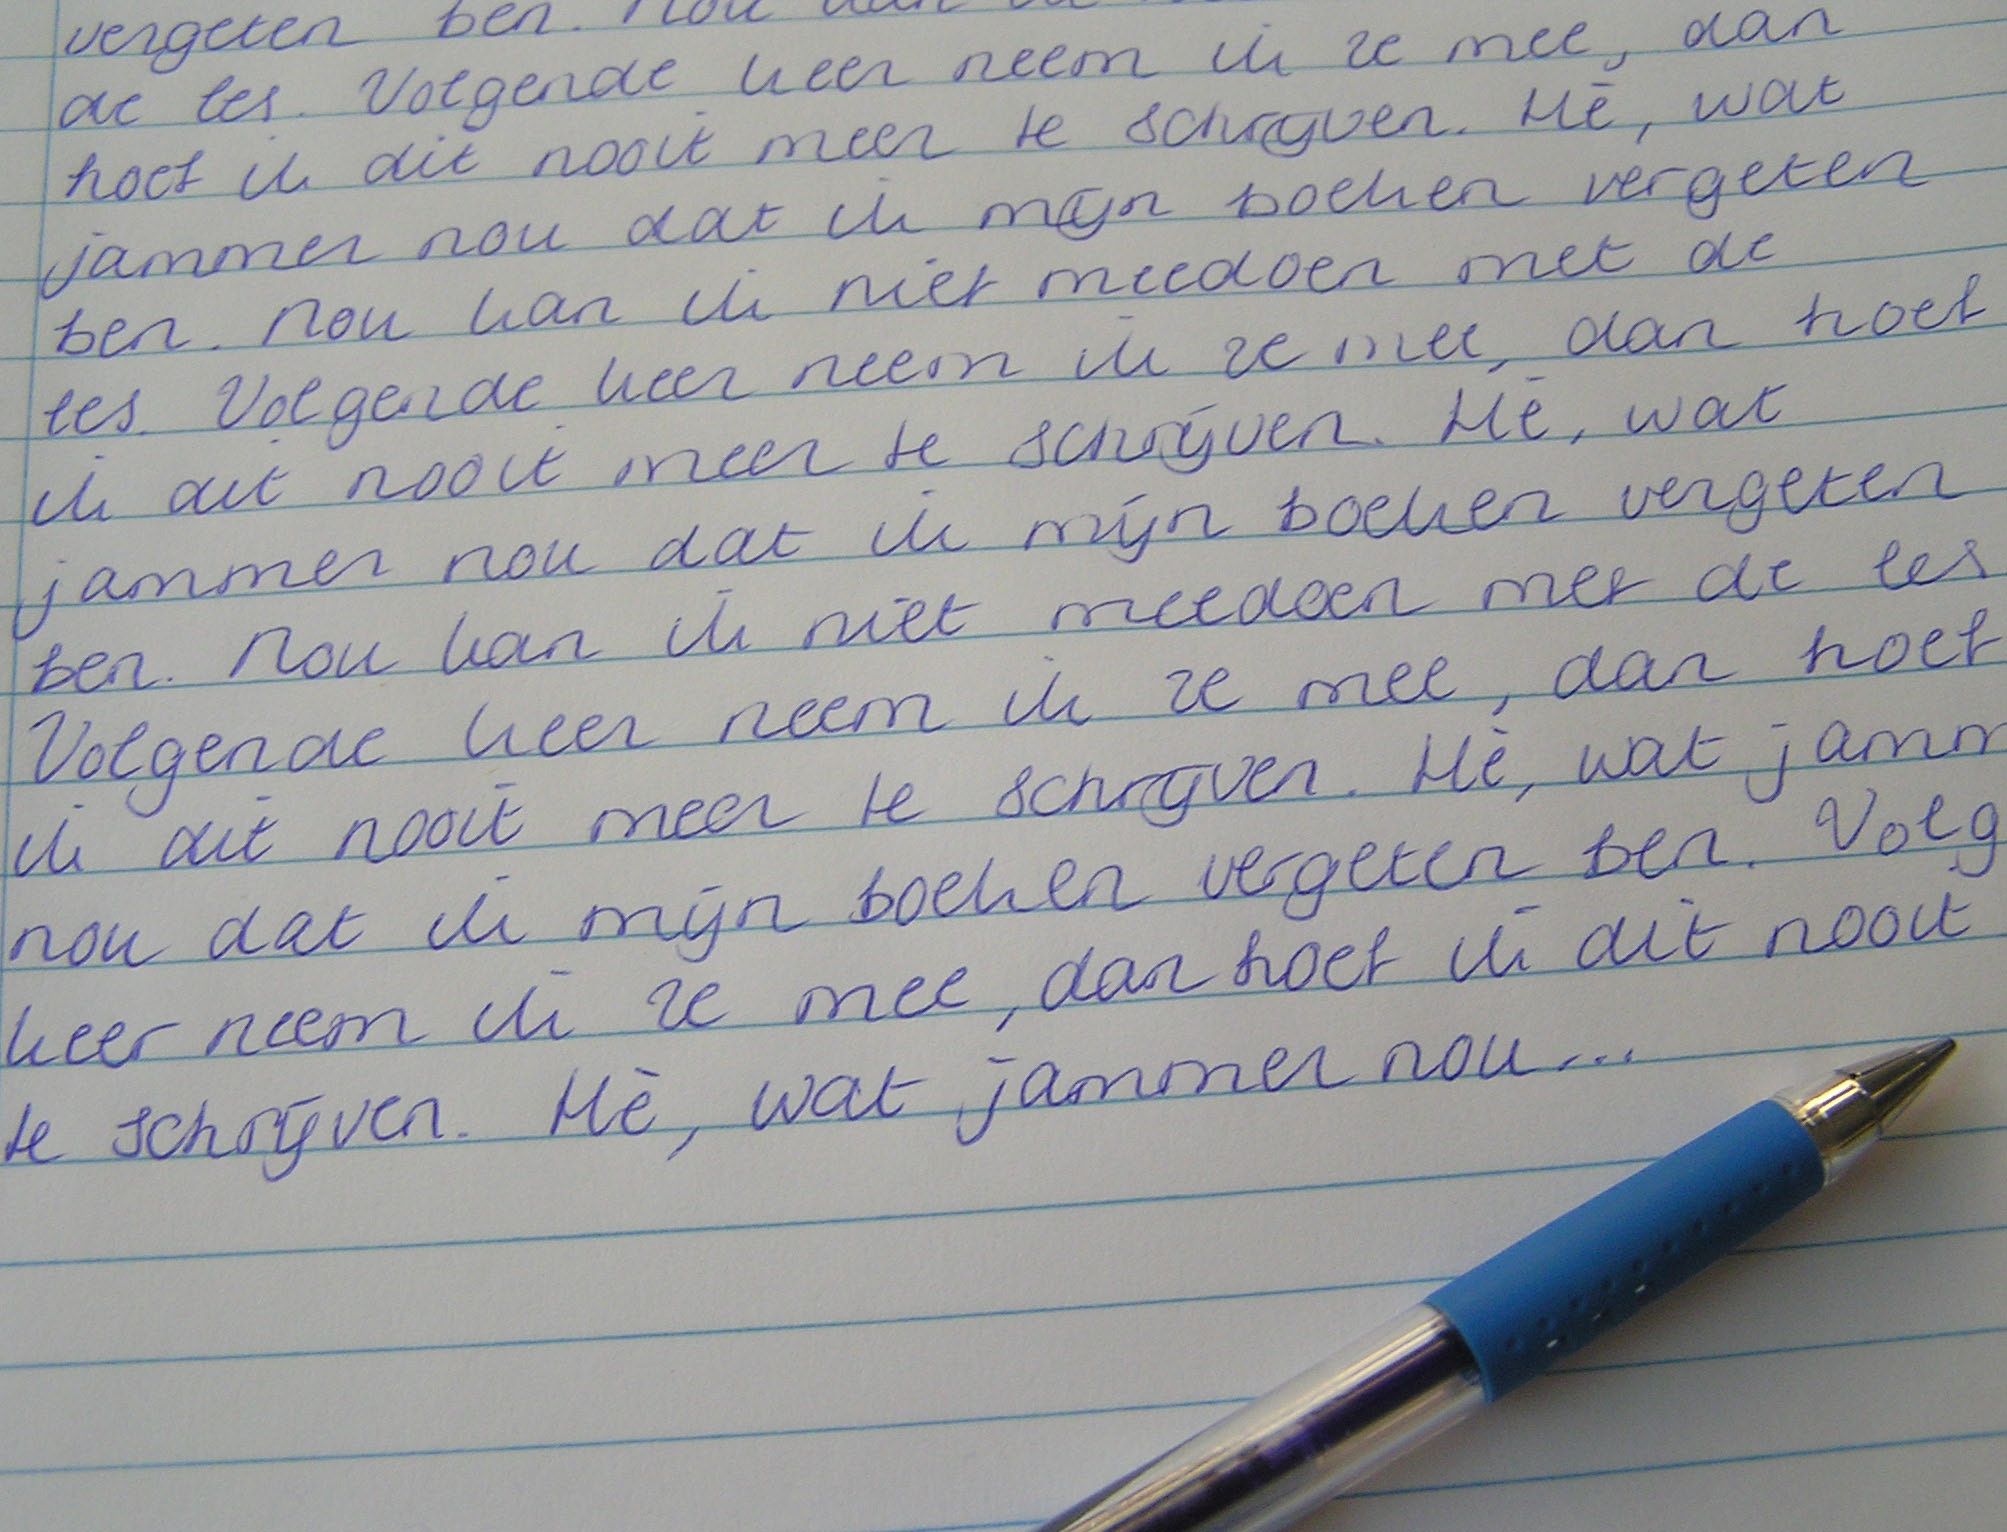 vergeten ben. Nou
de les. Volgende keer neem ik ze mee, dan
hoef ik dit nooit meer te schrijven. Hè, wat
jammer nou dat ik mijn boeken vergeten
ben. Nou kan ik niet meedoen met de
les. Volgende keer neem ik ze mee, dan hoef
ik dit nooit meer te schrijven. Hè, wat
jammer nou dat ik mijn boeken vergeten
ben. Nou kan ik niet meedoen met de les
Volgende keer neem ik ze mee, dan hoef
ik dit nooit meer te schrijven. Hè, wat jamm
nou dat ik mijn boeken vergeten ben. Volg
keer neem ik ze mee, dan hoef ik dit nooit
te schrijven. Hè, wat jammer nou...